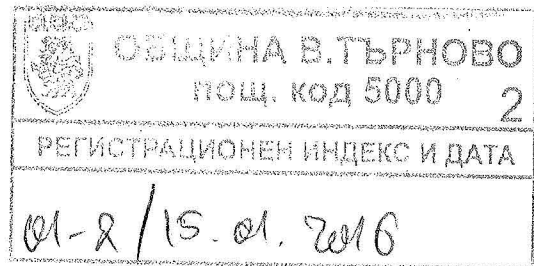 ОБЩИНА В.ТЪРНОВО
пощ. код 5000 2
РЕГИСТРАЦИОНЕН ИНДЕКС И ДАТА
01-8/15.01.2016